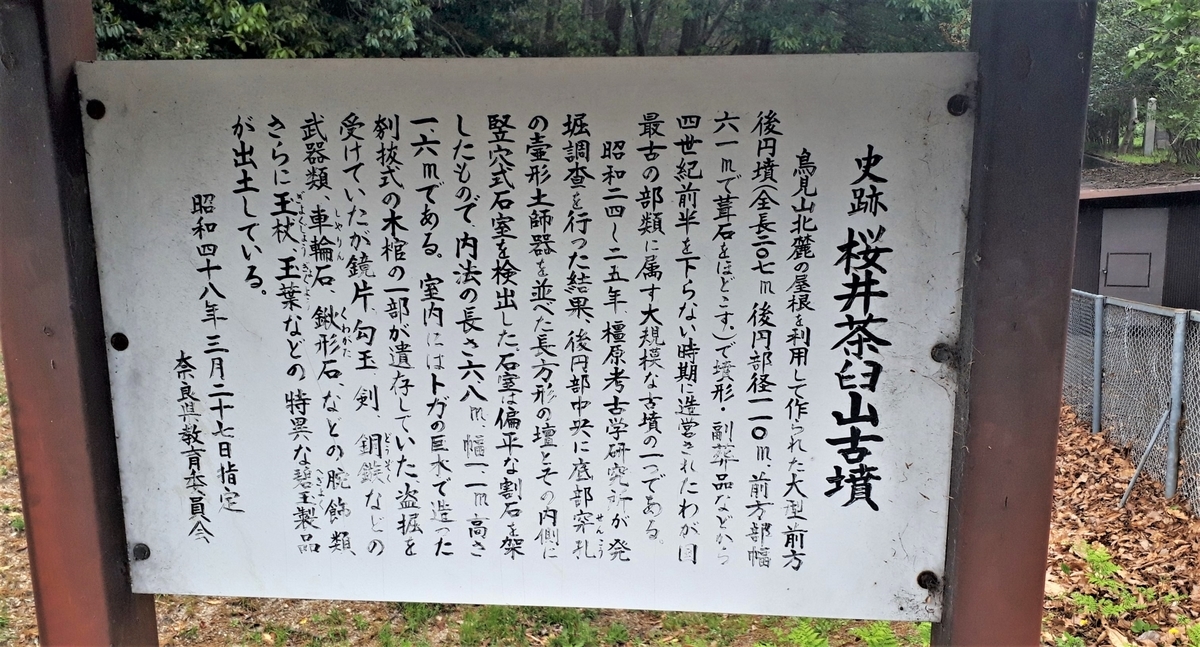 史跡 桜井茶臼山古墳
鳥見山北麓の尾根を利用して作られた大型前方
後円墳(全長二〇七m 後円部径一一〇m、前方部幅
六一mで葺石をほどこす。)で墳形・副葬品などから
四世紀前半を下らない時期に造営されたわが国
最古の部類に属す大規模な古墳の一つである。
昭和二四〜二五年、橿原考古学研究所が発
堀調査を行った結果、後円部中央に底部穿孔
せんこう
の壷形土師器を並べた長方形の壇とその内側に
竪穴式石室を検出した。石室は偏平な割石を架
したもので内法の長さ六・八m、幅一・一m、高さ
一・六mである。室内にはトガの巨木で造った
刳抜式の木棺の一部が遺存していた。盗掘を
受けていたが鏡片、勾玉 剣、銅鏃などの
どうぞく
武器類、車輪石、鍬形石、などの腕飾類、
しゃりん
くわがた
さらに玉杖、玉葉などの特異な碧玉製品
ぎょくじょう
が出土している。
昭和四十八年三月二十七日指定
奈良県教育委員会